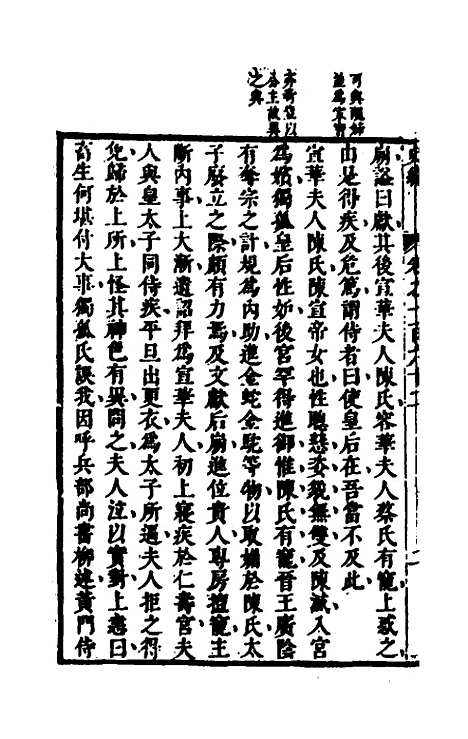 崩謚曰獻其後宣華夫人陳氏容華夫人蔡氏有寵上惑之
由是得疾及危篤謂侍者曰使皇后在吾當不及此
宣華夫人陳氏陳宣帝女也性聰慧姿貌無雙及陳滅入宮
為嬪獨孤皇后性妒後宮罕得進御惟陳氏有寵晉王廣陰
有奪宗之計規為內助進金蛇金駝等物以取媚於陳氏太
子廢立之際頗有力焉及文獻后崩進位貴人專房擅寵主
斷內事上大漸遺詔拜為宣華夫人初上寢疾於仁壽宮夫
人與皇太子同侍疾平旦出更衣為太子所逼夫人拒之得
免歸於上所上怪其神色有異問之夫人泣以實對上恚曰
畜生何堪付大事獨孤氏誤我因呼兵部尚書柳述黃門侍